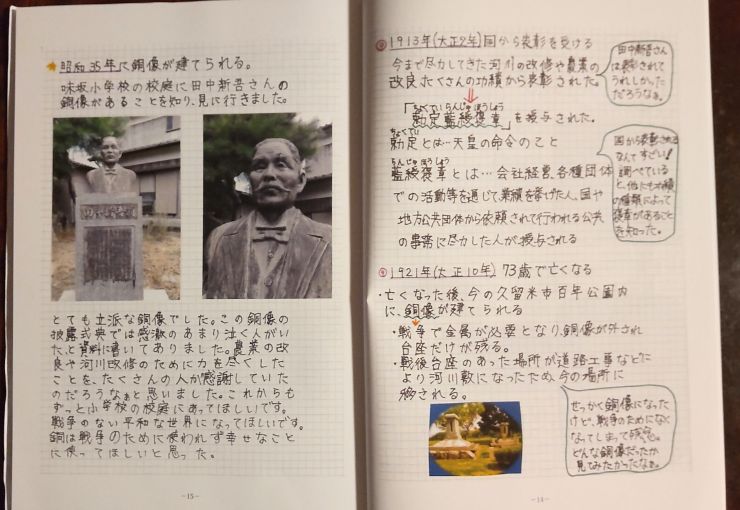 ★昭和35年に銅像が建てられる。
味坂小学校の校庭に田中新吾さんの
銅像があることを知り、見に行きました。
とても立派な銅像でした。この銅像の
披露式典では感激のあまり泣く人がい
た、と資料に書いてありました。農業の改
良や河川改修のために力を尽くした
ことを、たくさんの人が感謝していた
のだろうなぁと思いました。これからも
ずっと小学校の校庭にあってほしいです。
戦争のない平和な世界になってほしいです。
銅は戦争のために使われず幸せなこと
に使ってほしいと思った。
-15-
1913年(大正2年)国から表彰を受ける
今まで尽力してきた河川の改修や農業の
改良、たくさんの功績から表彰された。
ちょくていらんじゅほうしょう
「勅定藍綬褒章」を授与された。
ちょくてい
勅定とは…天皇の命令のこと
らんじゅほうしょう
藍綬褒章とは…会社経営、各種団体
での活動等を通じて業績を挙げた人、国や
地方公共団体から依頼されて行われる公共
の事務に尽力した人が授与される
田中新吾さん
は表彰されて
うれしかった
だろうなぁ。
国から表彰される
なんてすごい!
調べている
と、他にも功績
の種類によって
褒章があること
を知った。
1921年(大正10年) 73歳で亡くなる
・亡くなった後、今の久留米市百年公園内
に、銅像が建てられる
・戦争で金属が必要となり、銅像が外され
台座だけが残る。
・戦後台座のあった場所が道路工事などに
より河川敷になったため、今の場所に
移される。
せっかく銅像になった
けど、戦争のためになく
なってしまって残念。
どんな銅像だったか
見てみたかったなぁ。
-14-